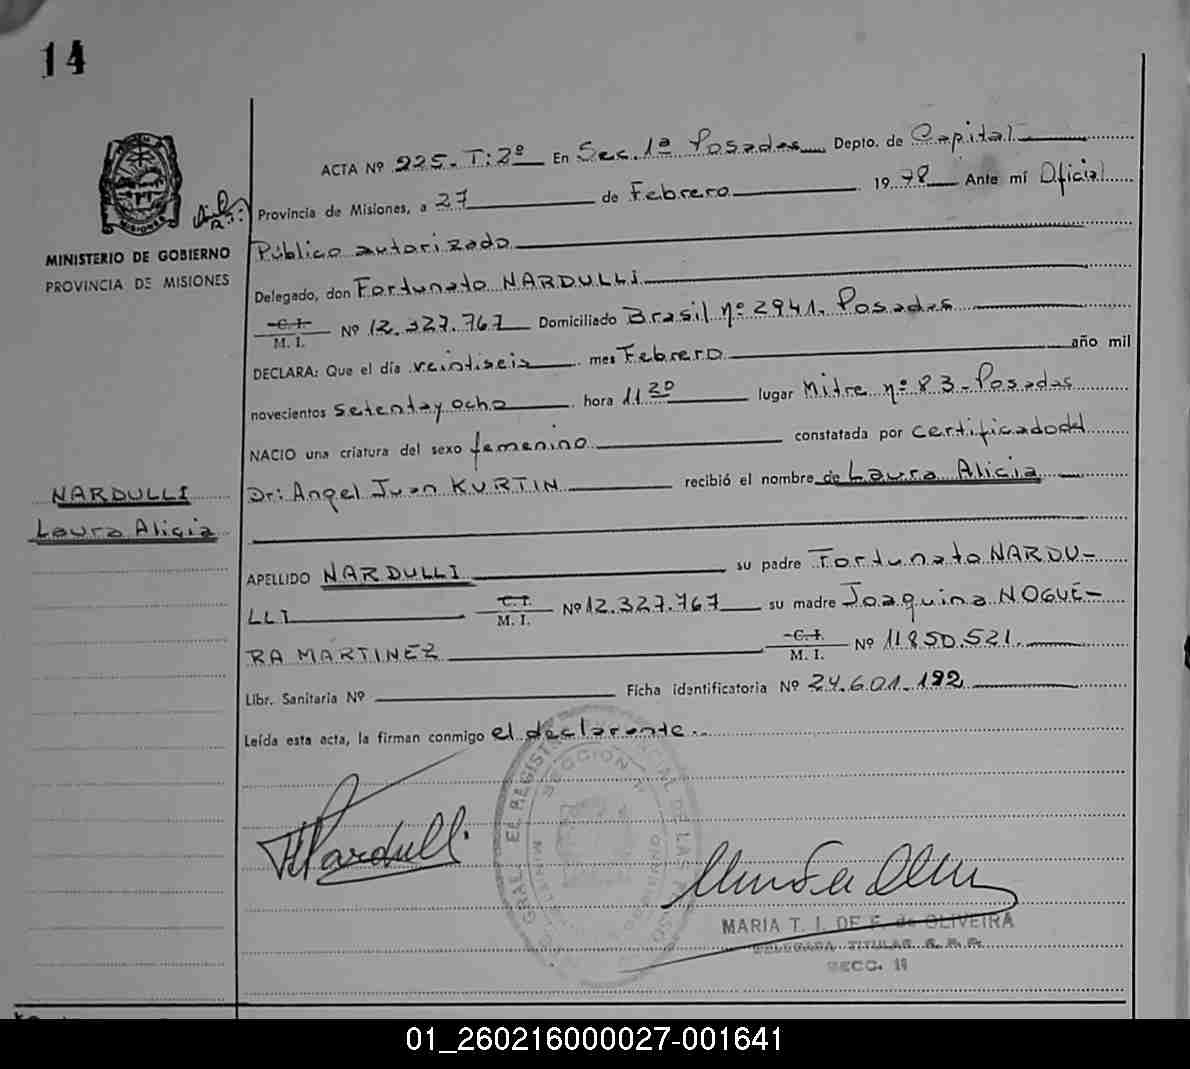 14
ACTA Nº 225. T: 2º En Sec. 1ª Posadas Depto. de Capital
Provincia de Misiones, a 27 de Febrero 1978 Ante mí Oficial
MINISTERIO DE GOBIERNO
PROVINCIA DE MISIONES
Público autorizado
Delegado, don Fortunato NARDULLI
C. I.
M. I. Nº 12.327.767 Domiciliado Brasil nº 2941. Posadas
DECLARA: Que el día veintiseis mes Febrero año mil
novecientos setenta y ocho hora 11 30 lugar Mitre nº 83 - Posadas
NACIO una criatura del sexo femenino constatada por certificado del
Dr: Angel Juan KURTIN recibió el nombre de Laura Alicia
NARDULLI
Laura Alicia
APELLIDO NARDULLI su padre Fortunato NARDU-
LLI C. I.
M. I. Nº 12.327.767 su madre Joaquina NOGUE-
RA MARTINEZ C. I.
M. I. Nº 11.850.521.
Libr. Sanitaria Nº Ficha identificatoria Nº 24.601.192
Leída esta acta, la firman conmigo el declarante.
Nardulli
MARIA T. I. DE F. de OLIVEIRA
DELEGADA TITULAR
SECC.
01_260216000027-001641